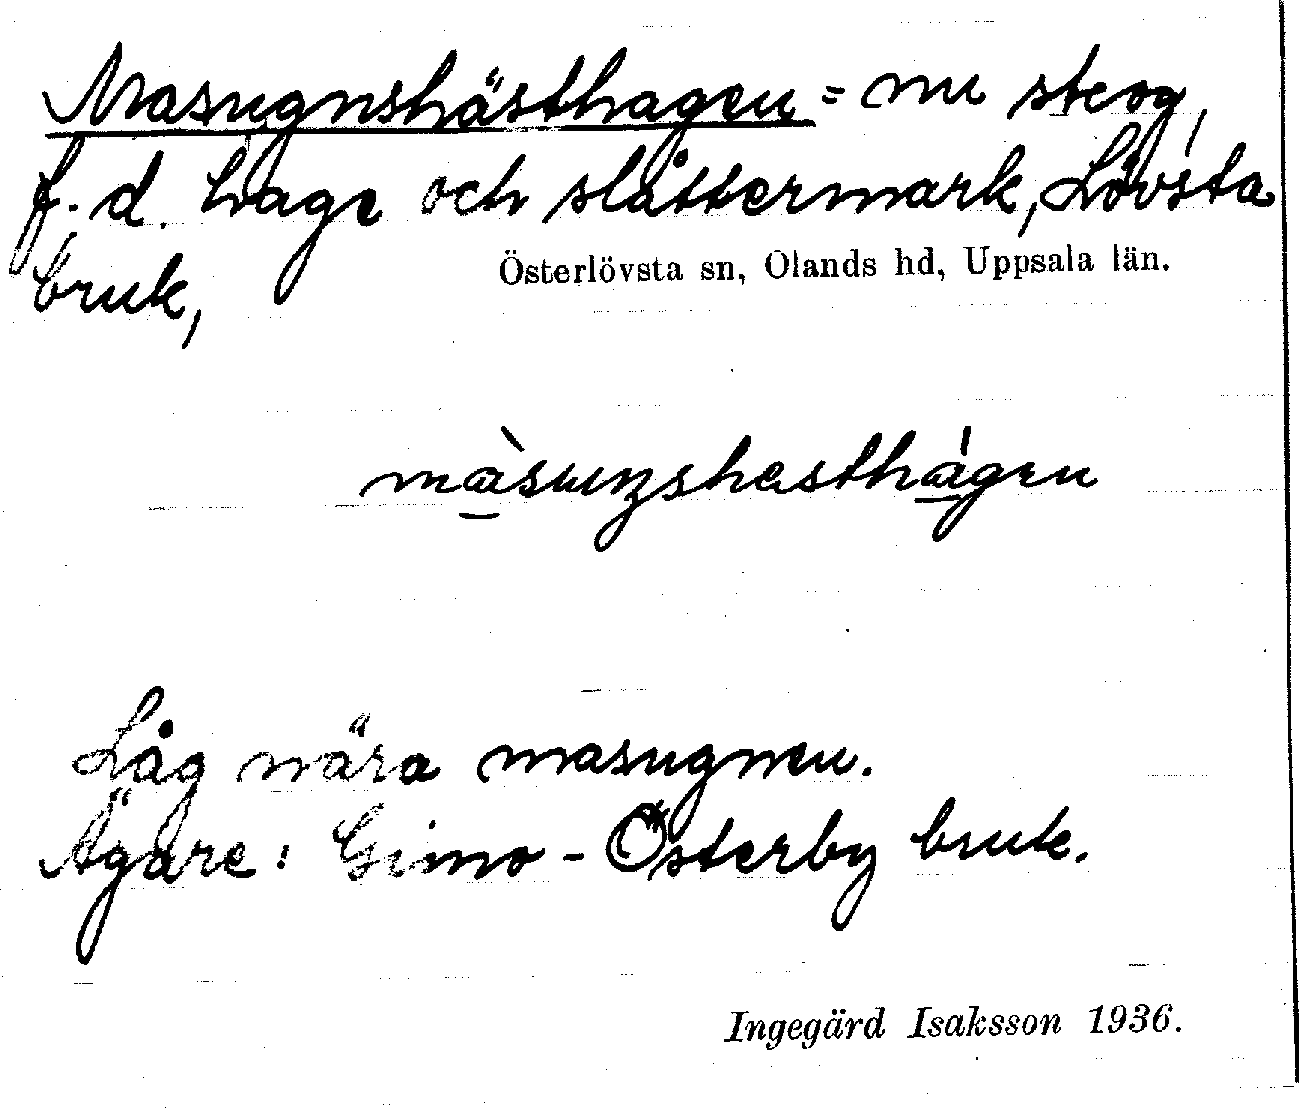 Masugnshästhagen = nu skog,
f.d. hage och slåttermark, Lövsta
bruk,
Österlövsta sn, Olands hd, Uppsala län.
Låg nära masugnen.
Ägare: Gimo-Österby bruk.
Ingegärd Isaksson 1936.